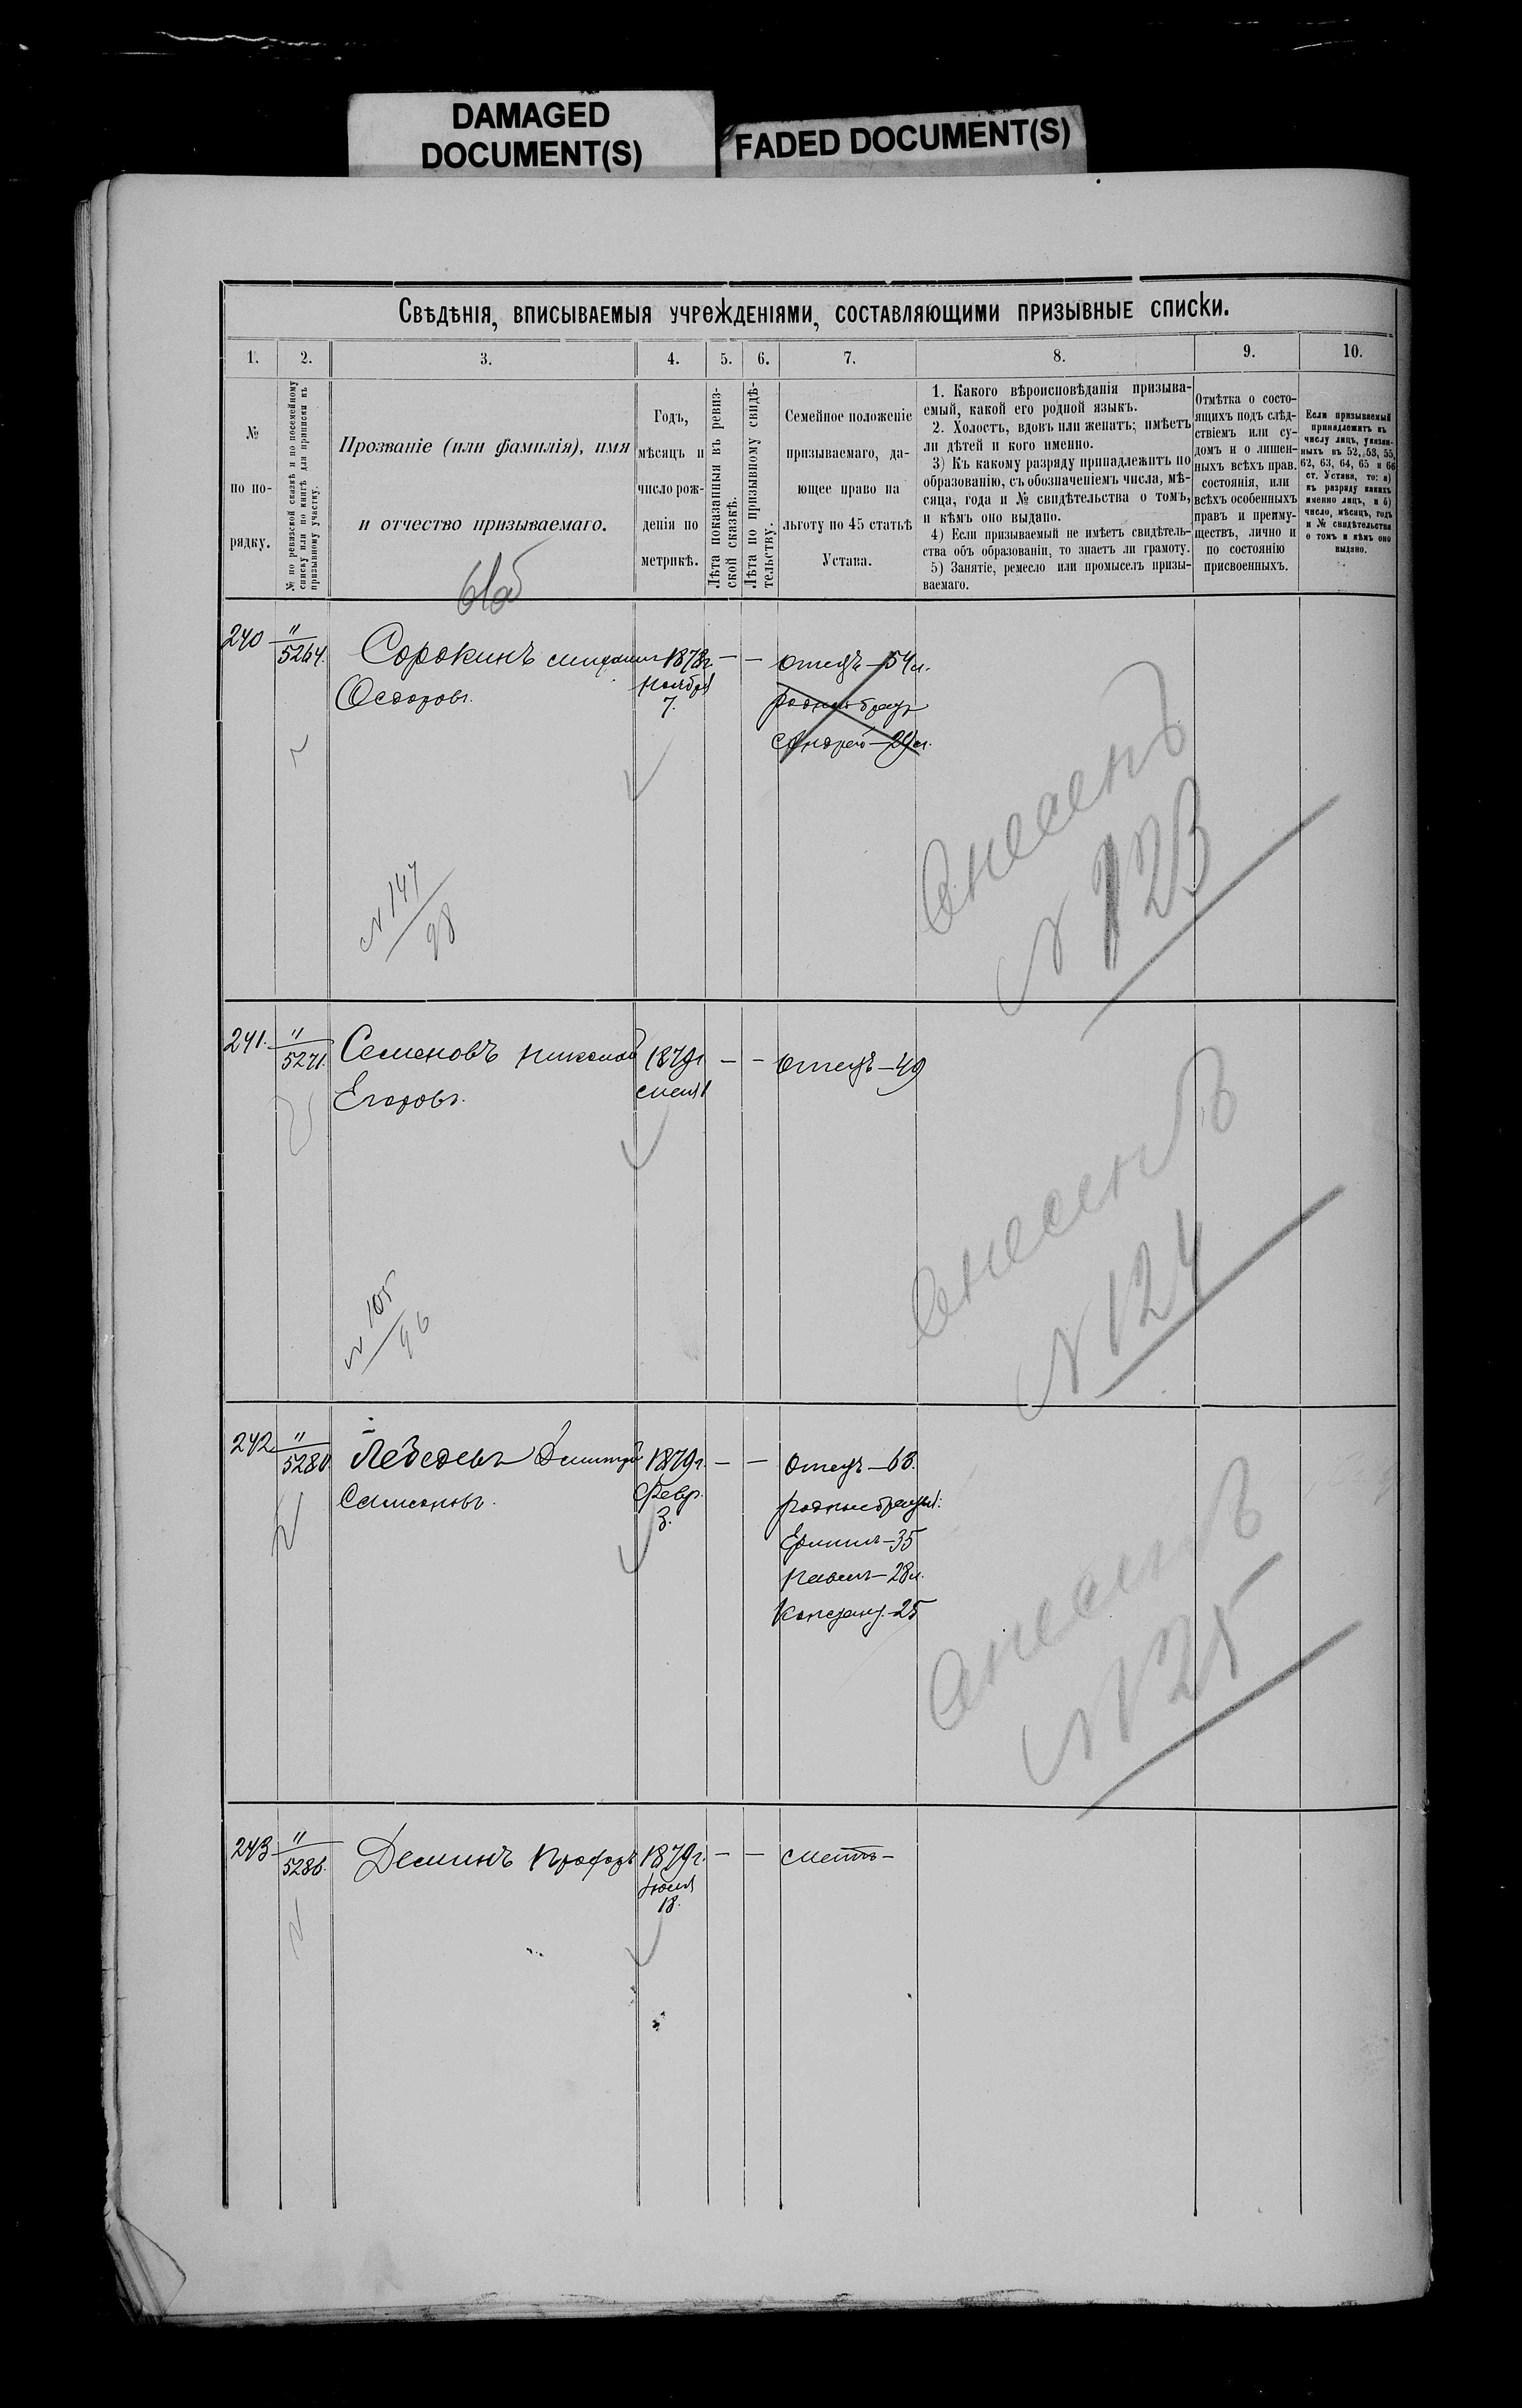 DAMAGED
DOCUMENT(S)
FADED DOCUMENT(S)
Свѣдѣнія, вписываемыя учрежденіями, составляющими призывные списки.
1. 2. 3. 4. 5. 6. 7. 8. 9. 10.
№
по по-
рядку.
№ по ревизской сказкѣ и по посемейному
списку или по книгѣ для приписки къ
призывному участку.
Прозваніе (или фамилія), имя
и отчество призываемаго.
Годъ,
мѣсяцъ и
число рож-
денія по
метрикѣ.
Лѣта показанныя въ ревиз-
ской сказкѣ.
Лѣта по призывному свидѣ-
тельству.
Семейное положеніе
призываемаго, да-
ющее право на
льготу по 45 статьѣ
Устава.
1. Какого вѣроисповѣданія призыва-
емый, какой его родной языкъ.
2. Холостъ, вдовъ или женатъ; имѣетъ
ли дѣтей и кого именно.
3) Къ какому разряду принадлежитъ по
образованію, съ обозначеніемъ числа, мѣ-
сяца, года и № свидѣтельства о томъ,
и кѣмъ оно выдано.
4) Если призываемый не имѣетъ свидѣтель-
ства объ образованіи, то знаетъ ли грамоту.
5) Занятіе, ремесло или промыселъ призы-
ваемаго.
Отмѣтка о состо-
ящихъ подъ слѣд-
ствіемъ или су-
домъ и о лишен-
ныхъ всѣхъ прав.
состоянія, или
всѣхъ особенныхъ
правъ и преиму-
ществъ, лично и
по состоянію
присвоенныхъ.
Если призываемый
принадлежитъ къ
числу лицъ, указан-
ныхъ въ 52, 53, 55,
62, 63, 64, 65 и 66
ст. Устава, то: а)
къ разряду какихъ
именно лицъ, и б)
число, мѣсяцъ, годъ
и № свидѣтельства
о томъ и кѣмъ оно
выдано.
240 " 5264. Сорокинъ 1878г. — — отецъ—54л.
Ѳедоровъ. Ноября
7.
родной братъ
Андрей—29л.
N 147
98
внесенъ
N 123
241. " 5271. Семеновъ Николай 1879г — — отецъ—49
Егоровъ.
N 105
96
внесенъ
N 124
242 " 5280. Лебедевъ Дмитрій 1879г. — — отецъ—63.
Самсоновъ. Февр.
3.
родные братья:
Ермилъ—35
Павелъ—28л.
Констант.—25
внесенъ
N 125
243 " 5286. Деминъ Прохоръ 1879г. — — мать—
Іюля
18.